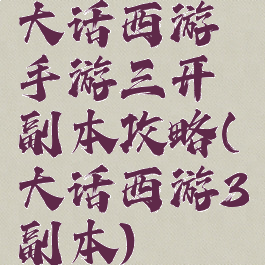 大话西游
手游三开
副本攻略(
大话西游3
副本)